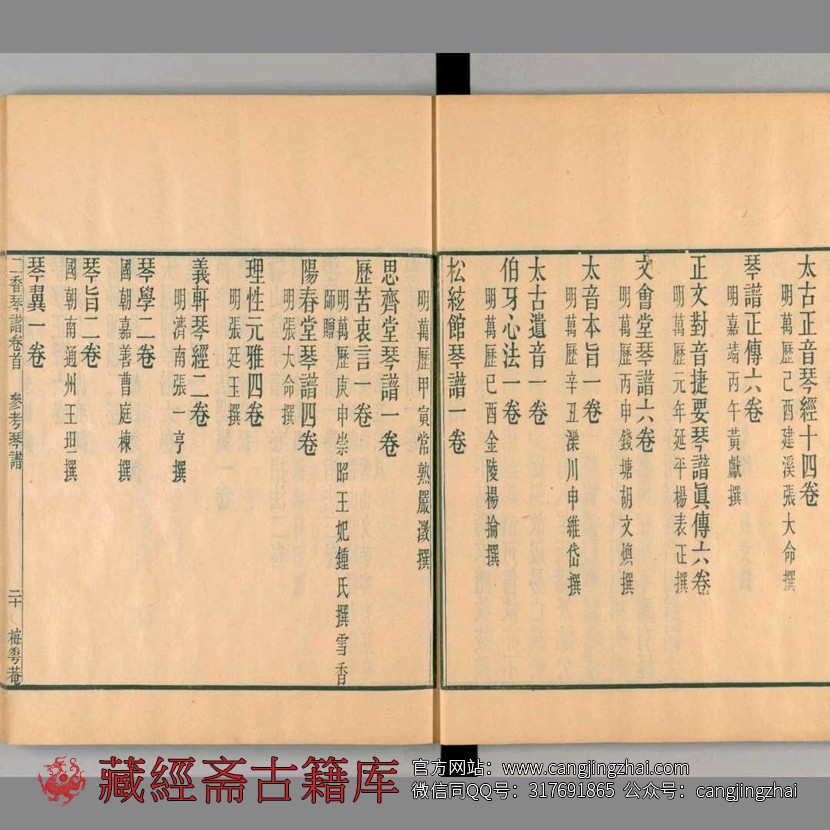 太古正音琴經十四卷
明萬歷己酉建溪張大命撰
琴譜正傳六卷
明嘉靖丙午黃獻撰
正文對音捷要琴譜眞傳六卷
明萬歷元年延平楊表正撰
文會堂琴譜六卷
明萬歷丙申錢塘胡文煥撰
太音本旨一卷
明萬歷辛丑濼川申維岱撰
太古遺音一卷
伯牙心法一卷
明萬歷己酉金陵楊掄撰
松絃館琴譜一卷
明萬歷甲寅常熟嚴澂撰
思齊堂琴譜一卷
歷苦衷言一卷
明萬歷庚申崇昭王妃鍾氏撰雪香
師贈
陽春堂琴譜四卷
明張大命撰
理性元雅四卷
明張廷玉撰
義軒琴經二卷
明濟南張一亨撰
琴學二卷
國朝嘉善曹庭棟撰
琴旨二卷
國朝南通州王坦撰
琴翼一卷
二香琴譜卷首 參考琴譜 二十 梅雪菴
藏經斋古籍库
官方网站：www.cangjingzhai.com
微信同QQ号：317691865 公众号：cangjingzhai